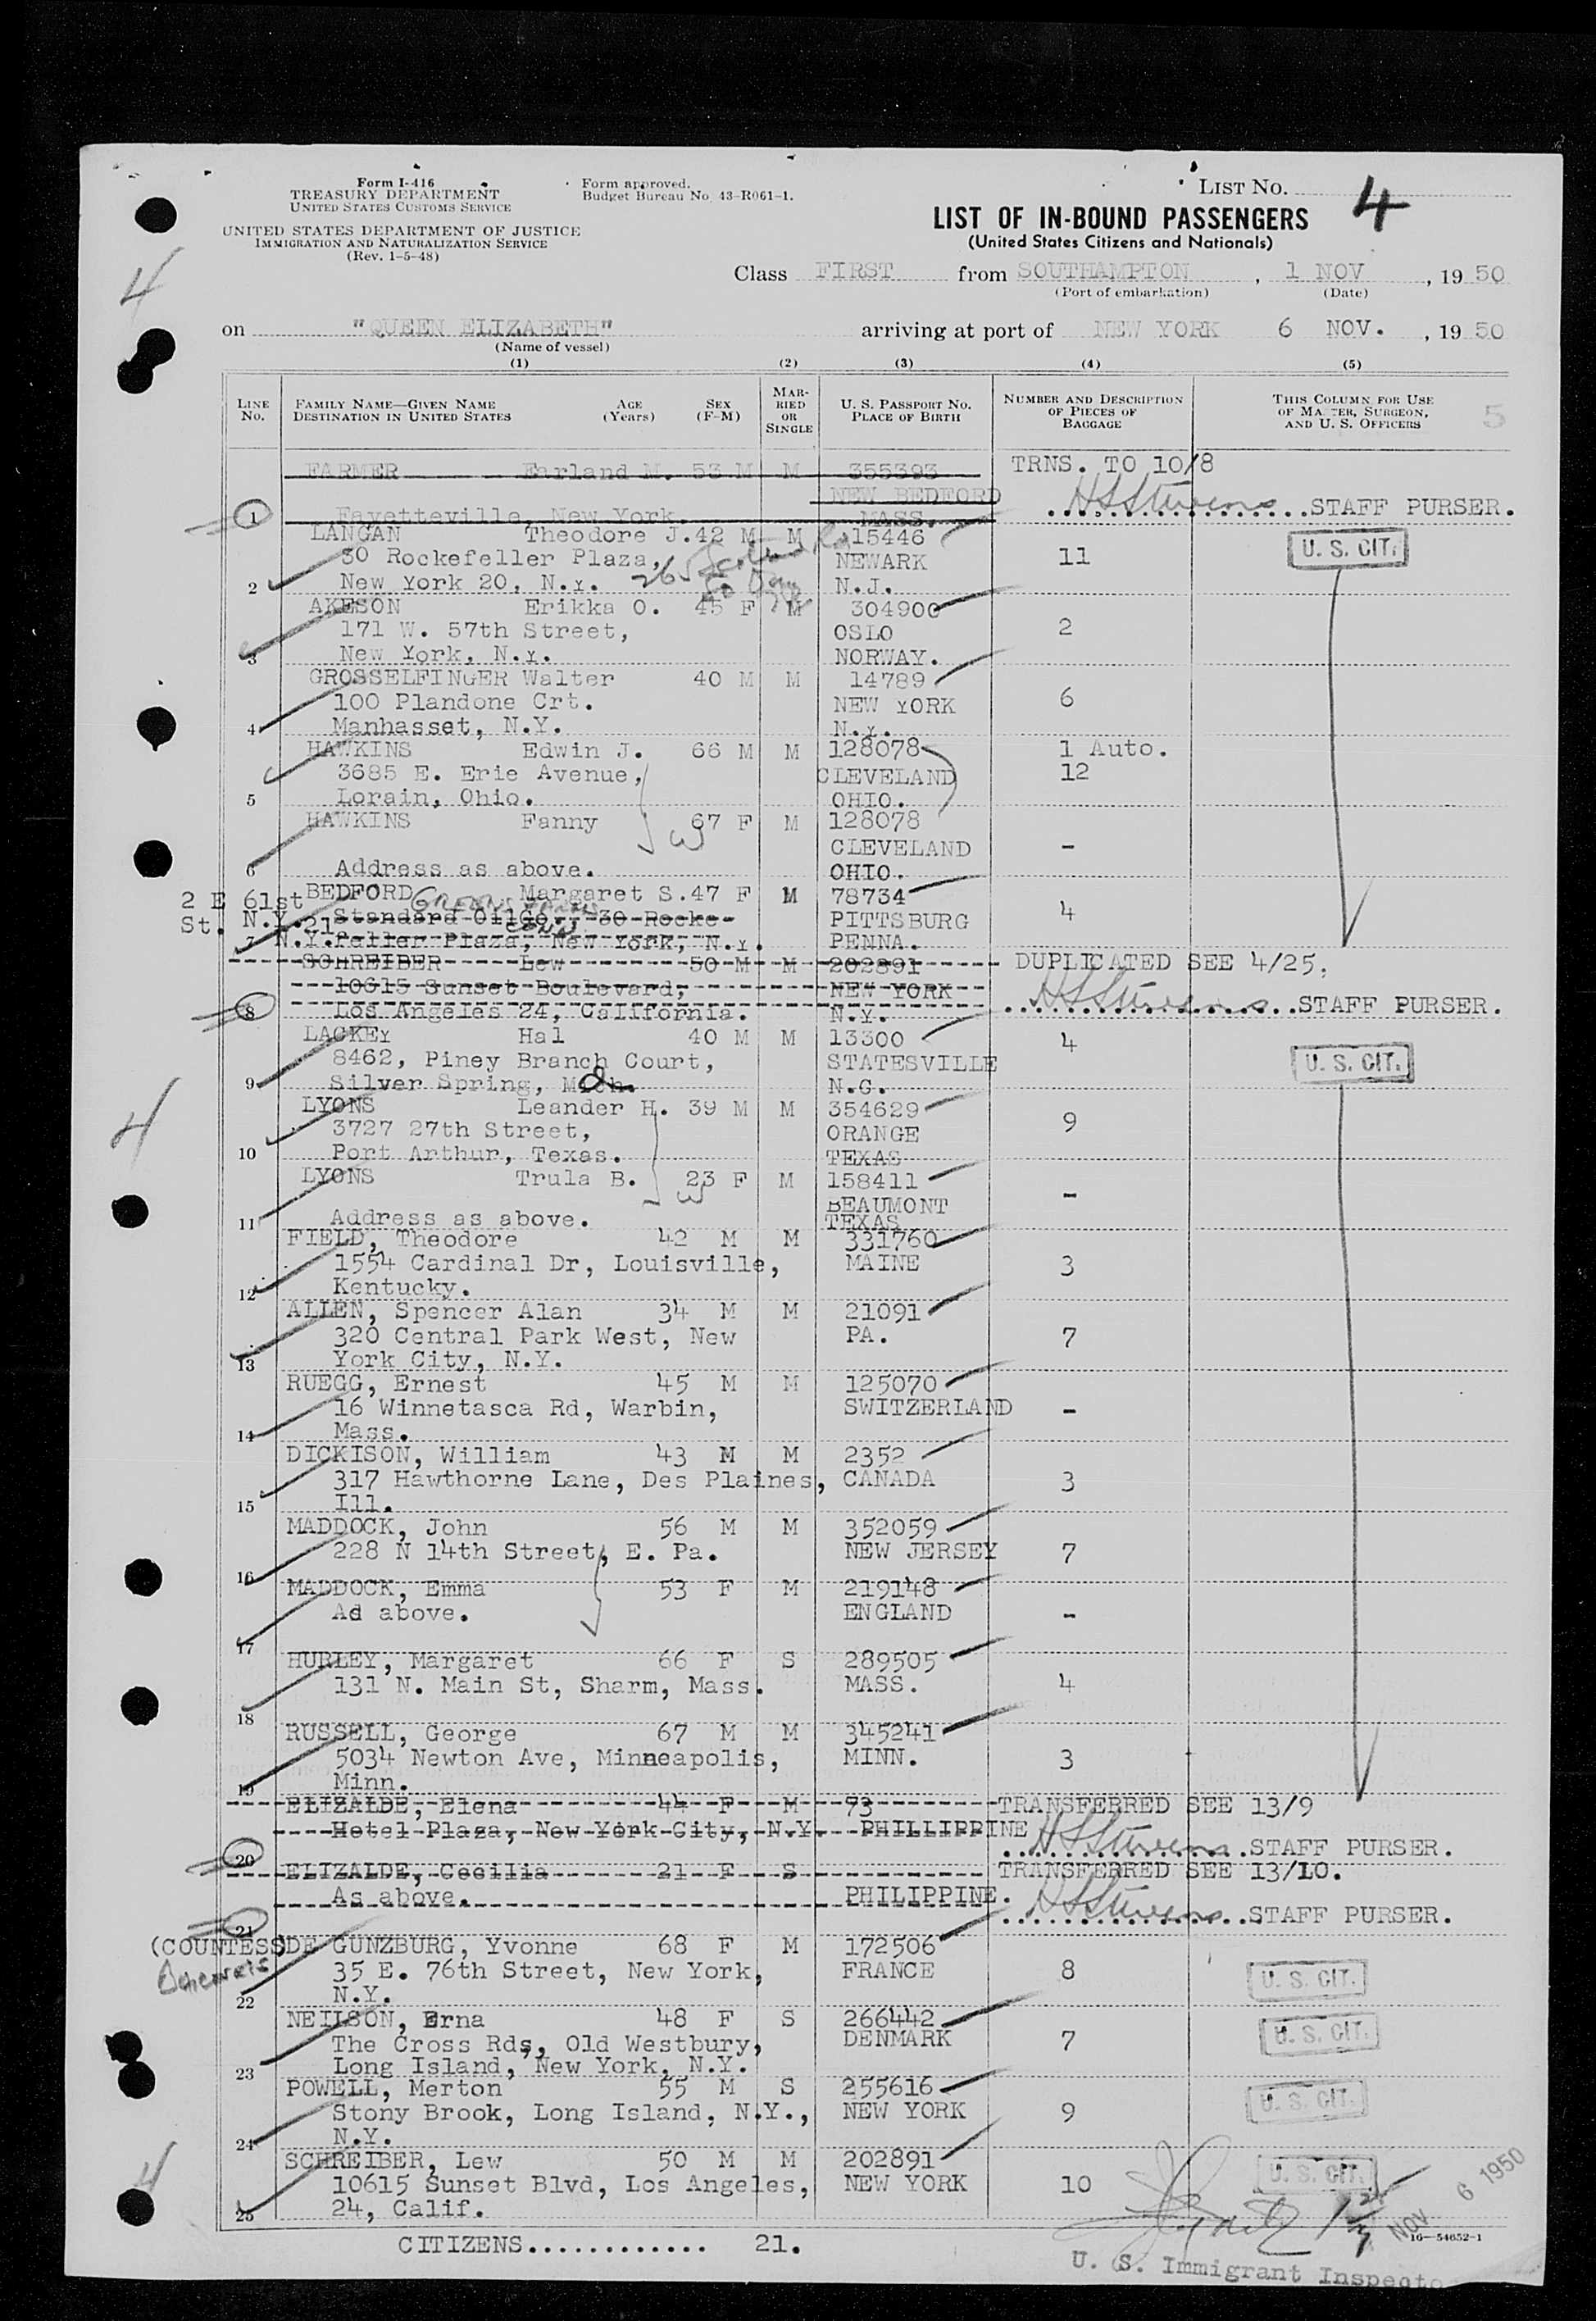 Form I-416
TREASURY DEPARTMENT
UNITED STATES CUSTOMS SERVICE
UNITED STATES DEPARTMENT OF JUSTICE
IMMIGRATION AND NATURALIZATION SERVICE
(Rev. 1-5-48)
Form approved.
Budget Bureau No. 43-R061-1.
LIST NO. 4
LIST OF IN-BOUND PASSENGERS
(United States Citizens and Nationals)
4
Class FIRST from SOUTHAMPTON, 1 NOV, 1950
(Port of embarkation) (Date)
on "QUEEN ELIZABETH" arriving at port of NEW YORK 6 NOV., 1950
(Name of vessel)
(1) (2) (3) (4) (5)
LINE NO. FAMILY NAME—GIVEN NAME DESTINATION IN UNITED STATES AGE (Years) SEX (F-M) MARRIED OR SINGLE U. S. PASSPORT NO. PLACE OF BIRTH NUMBER AND DESCRIPTION OF PIECES OF BAGGAGE THIS COLUMN FOR USE OF MASTER, SURGEON, AND U. S. OFFICERS 5
FARMER Earland M. 53 M M 355393 TRNS. TO 10/8
NEW BEDFORD
1 Fayetteville, New York. MASS. HSStevens STAFF PURSER.
LANGAN Theodore J. 42 M M 15446 U. S. CIT.
30 Rockefeller Plaza, NEWARK 11
2 New York 20, N.Y. 265 N.J.
AKESON Erikka O. 45 F M 304900
171 W. 57th Street, OSLO 2
3 New York, N.Y. NORWAY.
GROSSELFINGER Walter 40 M M 14789
100 Plandone Crt. NEW YORK 6
4 Manhasset, N.Y. N.Y.
HAWKINS Edwin J. 66 M M 128078 1 Auto.
3685 E. Erie Avenue, CLEVELAND 12
5 Lorain, Ohio. OHIO.
HAWKINS Fanny 67 F M 128078
W CLEVELAND -
6 Address as above. OHIO.
BEDFORD Margaret S. 47 F M 78734
2 E 61st Standard Oil Co., 30 Rocke- PITTSBURG 4
St. N.Y. 21
7 N.Y. feller Plaza, New York, N.Y. PENNA.
Greens Farms
Conn
SCHREIBER Lew 50 M M 202891 DUPLICATED SEE 4/25,
10615 Sunset Boulevard, NEW YORK
8 Los Angeles 24, California. N.Y. HSStevens STAFF PURSER.
LACKEY Hal 40 M M 13300 4
8462, Piney Branch Court, STATESVILLE U. S. CIT.
9 Silver Spring, Md. N.C.
4
LYONS Leander H. 39 M M 354629
3727 27th Street, ORANGE 9
10 Port Arthur, Texas. TEXAS
LYONS Trula B. 23 F M 158411
W BEAUMONT -
11 Address as above. TEXAS
FIELD, Theodore 42 M M 331760
1554 Cardinal Dr, Louisville, MAINE 3
12 Kentucky.
ALLEN, Spencer Alan 34 M M 21091
320 Central Park West, New PA. 7
13 York City, N.Y.
RUEGG, Ernest 45 M M 125070
16 Winnetasca Rd, Warbin, SWITZERLAND -
14 Mass.
DICKISON, William 43 M M 2352
317 Hawthorne Lane, Des Plaines, CANADA 3
15 Ill.
MADDOCK, John 56 M M 352059
228 N 14th Street, E. Pa. NEW JERSEY 7
16
MADDOCK, Emma 53 F M 219148
Ad above. ENGLAND -
17
HURLEY, Margaret 66 F S 289505
131 N. Main St, Sharm, Mass. MASS. 4
18
RUSSELL, George 67 M M 345241
5034 Newton Ave, Minneapolis, MINN. 3
19 Minn.
ELIZALDE, Elena 44 F M 73 TRANSFERRED SEE 13/9
Hotel Plaza, New York City, N.Y. PHILLIPPINE
20 HSStevens STAFF PURSER.
ELIZALDE, Cecilia 21 F S TRANSFERRED SEE 13/10.
As above. PHILIPPINE.
21 HSStevens STAFF PURSER.
(COUNTESS DE GUNZBURG, Yvonne 68 F M 172506
35 E. 76th Street, New York, FRANCE 8 U. S. CIT.
22 N.Y.
NEILSON, Erna 48 F S 266442
The Cross Rds, Old Westbury, DENMARK 7 U. S. CIT.
23 Long Island, New York, N.Y.
POWELL, Merton 55 M S 255616
Stony Brook, Long Island, N.Y., NEW YORK 9 U. S. CIT.
24 N.Y.
4
SCHREIBER, Lew 50 M M 202891
10615 Sunset Blvd, Los Angeles, NEW YORK 10 U. S. CIT.
25 24, Calif.
NOV 6 1950
CITIZENS............ 21.
16—54652-1
U. S. Immigrant Inspecto